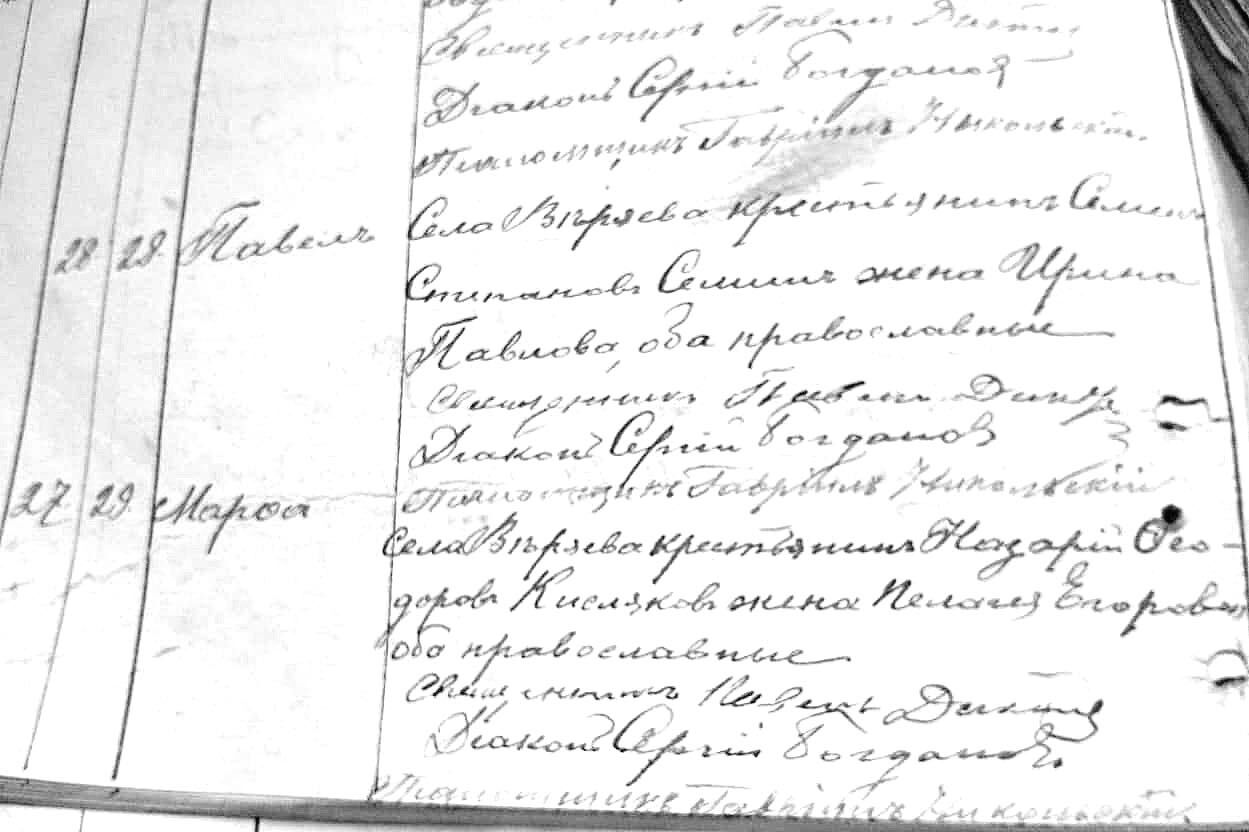 Священникъ Павелъ
Діаконъ Сергій Богдановъ
Псаломщикъ Гавріилъ Никольскій.
28 28 Павелъ Села Вѣряева крестьянинъ Семенъ
Степановъ Семинъ жена Ирина
Павлова, оба православные
Священникъ Павелъ
Діаконъ Сергій Богдановъ
Псаломщикъ Гавріилъ Никольскій
27 29 Марѳа Села Вѣряева крестьянинъ Назарій Ѳео-
доровъ Кисляковъ жена Пелагія Егорова
оба православные
Священникъ Павелъ
Діаконъ Сергій Богдановъ
Псаломщикъ Гавріилъ Никольскій